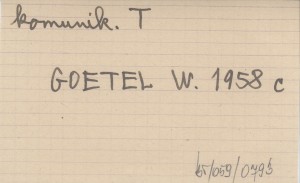 komunik. T
GOETEL W. 1958 c
65/059/0793